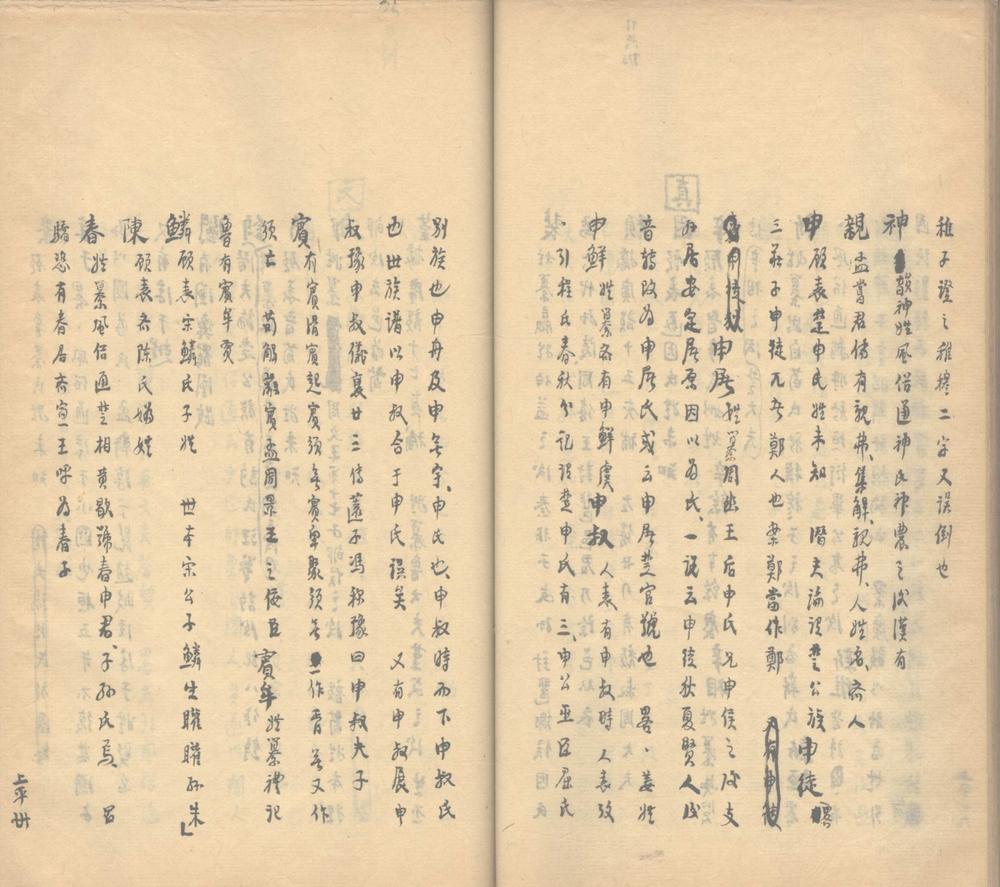 稚子證之雅擡二字又誤倒也
神 神姓風俗通神氏神農之後漢有
親 孟嘗君傳有親弗集解親弗人姓名斋人
申 顧表楚申氏姓未知 潛夫論謂楚公族 申徒
三莊子申徒兀者鄭人也案鄭當作鄭 又有申徒
申屠 姓纂周幽王后申氏兄申侯之後支
孫居安定屠原因以為氏一說云申徒狄夏賢人後
音轉改為申屠氏或云申屠楚官號也 畧姜姓
申鮮 姓纂齊有申鮮虞 申叔 人表有申叔時人表攷
引程氏春秋分記謂楚申氏有三申公巫臣屈氏
真
別族也申舟及申无宇申氏也申叔時而下申叔氏
也世族譜以申叔合于申氏誤矣 又有申叔展申
叔豫申叔儀襄廿二傳薳子馮稱豫曰申叔夫子
賓 有賓滑賓起賓須无賓卑聚須无一作胥无又作
須亡 賓孟周景王之佞臣 賓牟 姓纂禮記
魯有賓牟賈
鱗 顧表宗鱗氏子姓 世本宋公子鱗生矔矔孫朱
陳 顧表斋陈氏媯姓
春 姓纂風俗通楚相黄歇號春申君子孫氏焉 呂
驕恣有春居斋宣王呼為春子
上平 卅